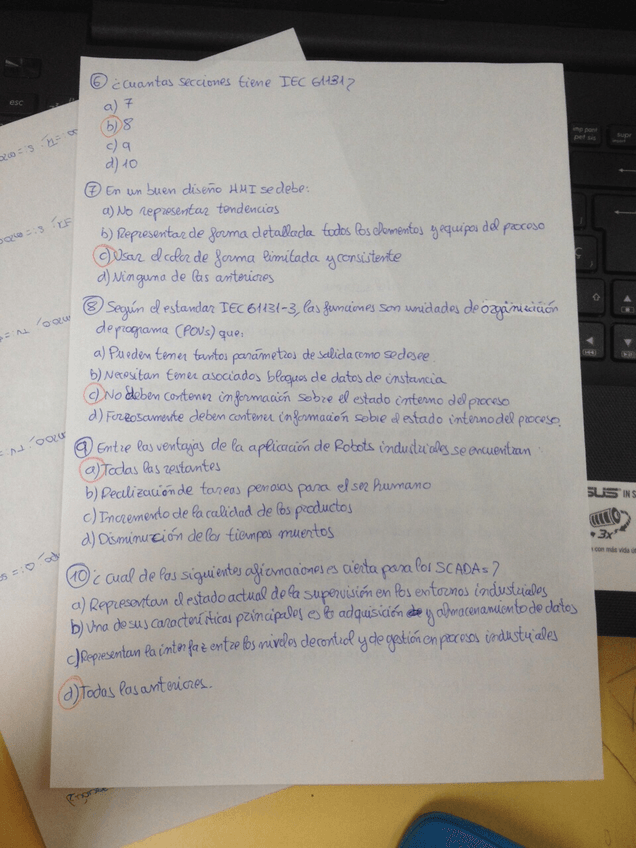 ⑥ ¿Cuantas secciones tiene IEC 61131?
a) 7
b) 8
c) 9
d) 10
⑦ En un buen diseño HMI se debe:
a) No representar tendencias
b) Representar de forma detallada todos los elementos y equipos del proceso
c) Usar el color de forma limitada y consistente
d) Ninguna de las anteriores
⑧ Según el estandar IEC 61131-3, las funciones son unidades de organización
de programa (POUs) que:
a) Pueden tener tantos parámetros de salida como se desee.
b) Necesitan tener asociados bloques de datos de instancia
c) No deben contener información sobre el estado interno del proceso
d) Forzosamente deben contener información sobre el estado interno del proceso.
⑨ Entre las ventajas de la aplicación de Robots industriales se encuentran:
a) Todas las restantes
b) Realización de tareas penosas para el ser humano
c) Incremento de la calidad de los productos
d) Disminución de los tiempos muertos
⑩ ¿Cual de las siguientes afirmaciones es cierta para los SCADAs?
a) Representan el estado actual de la supervisión en los entornos industriales
b) Una de sus características principales es la adquisición y almacenamiento de datos
c) Representan la interfaz entre los niveles de control y de gestión en procesos industriales
d) Todas las anteriores.
esc
supr
SUS IN S
3x
con más vida út